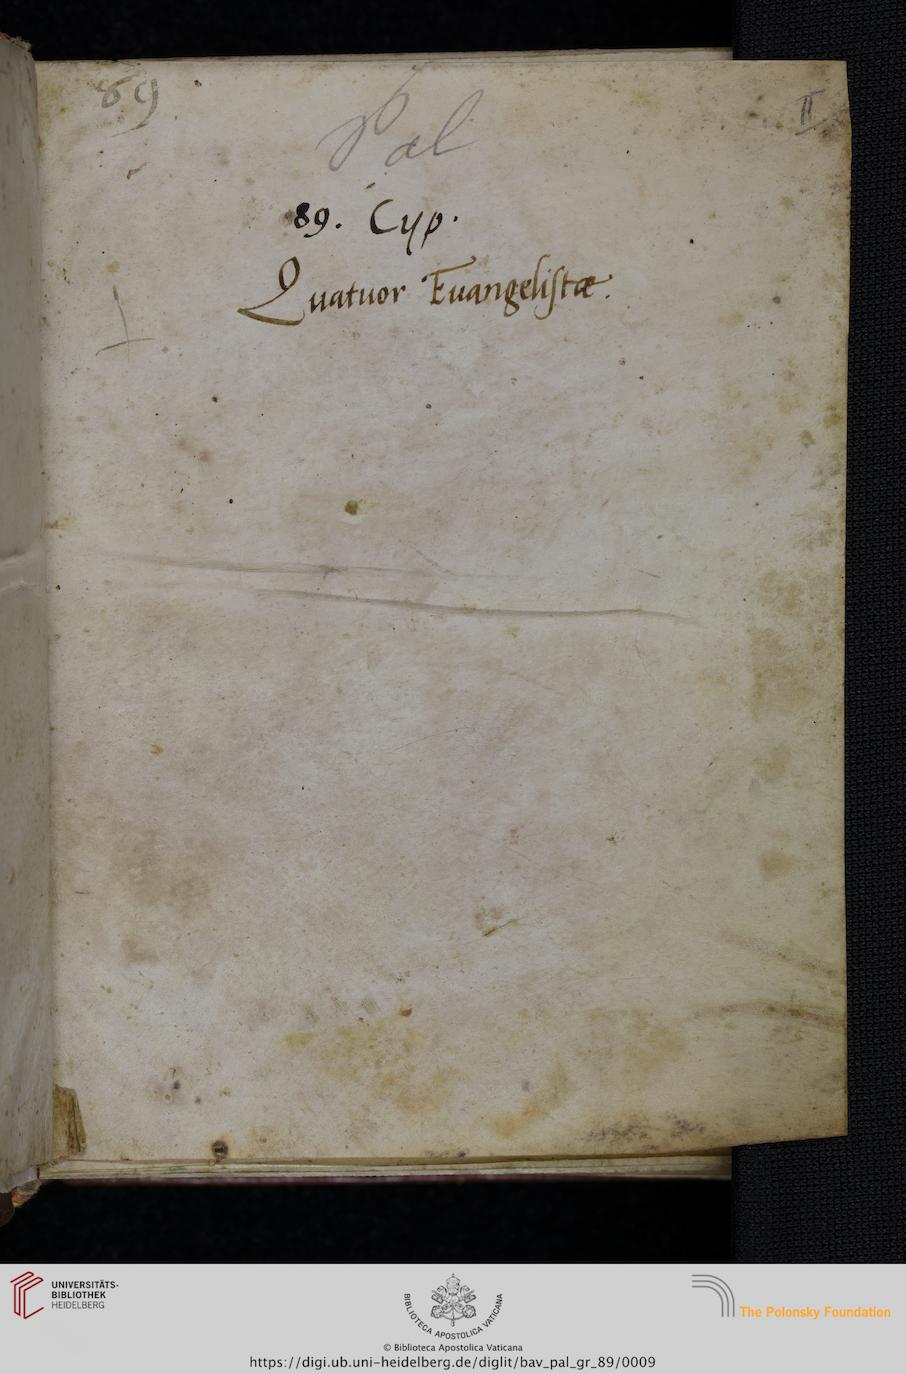 89
Pal
II
89. Cyp.
Quatuor Euangelistæ.
UNIVERSITÄTS-
BIBLIOTHEK
HEIDELBERG
BIBLIOTECA APOSTOLICA VATICANA
© Biblioteca Apostolica Vaticana
The Polonsky Foundation
https://digi.ub.uni-heidelberg.de/diglit/bav_pal_gr_89/0009